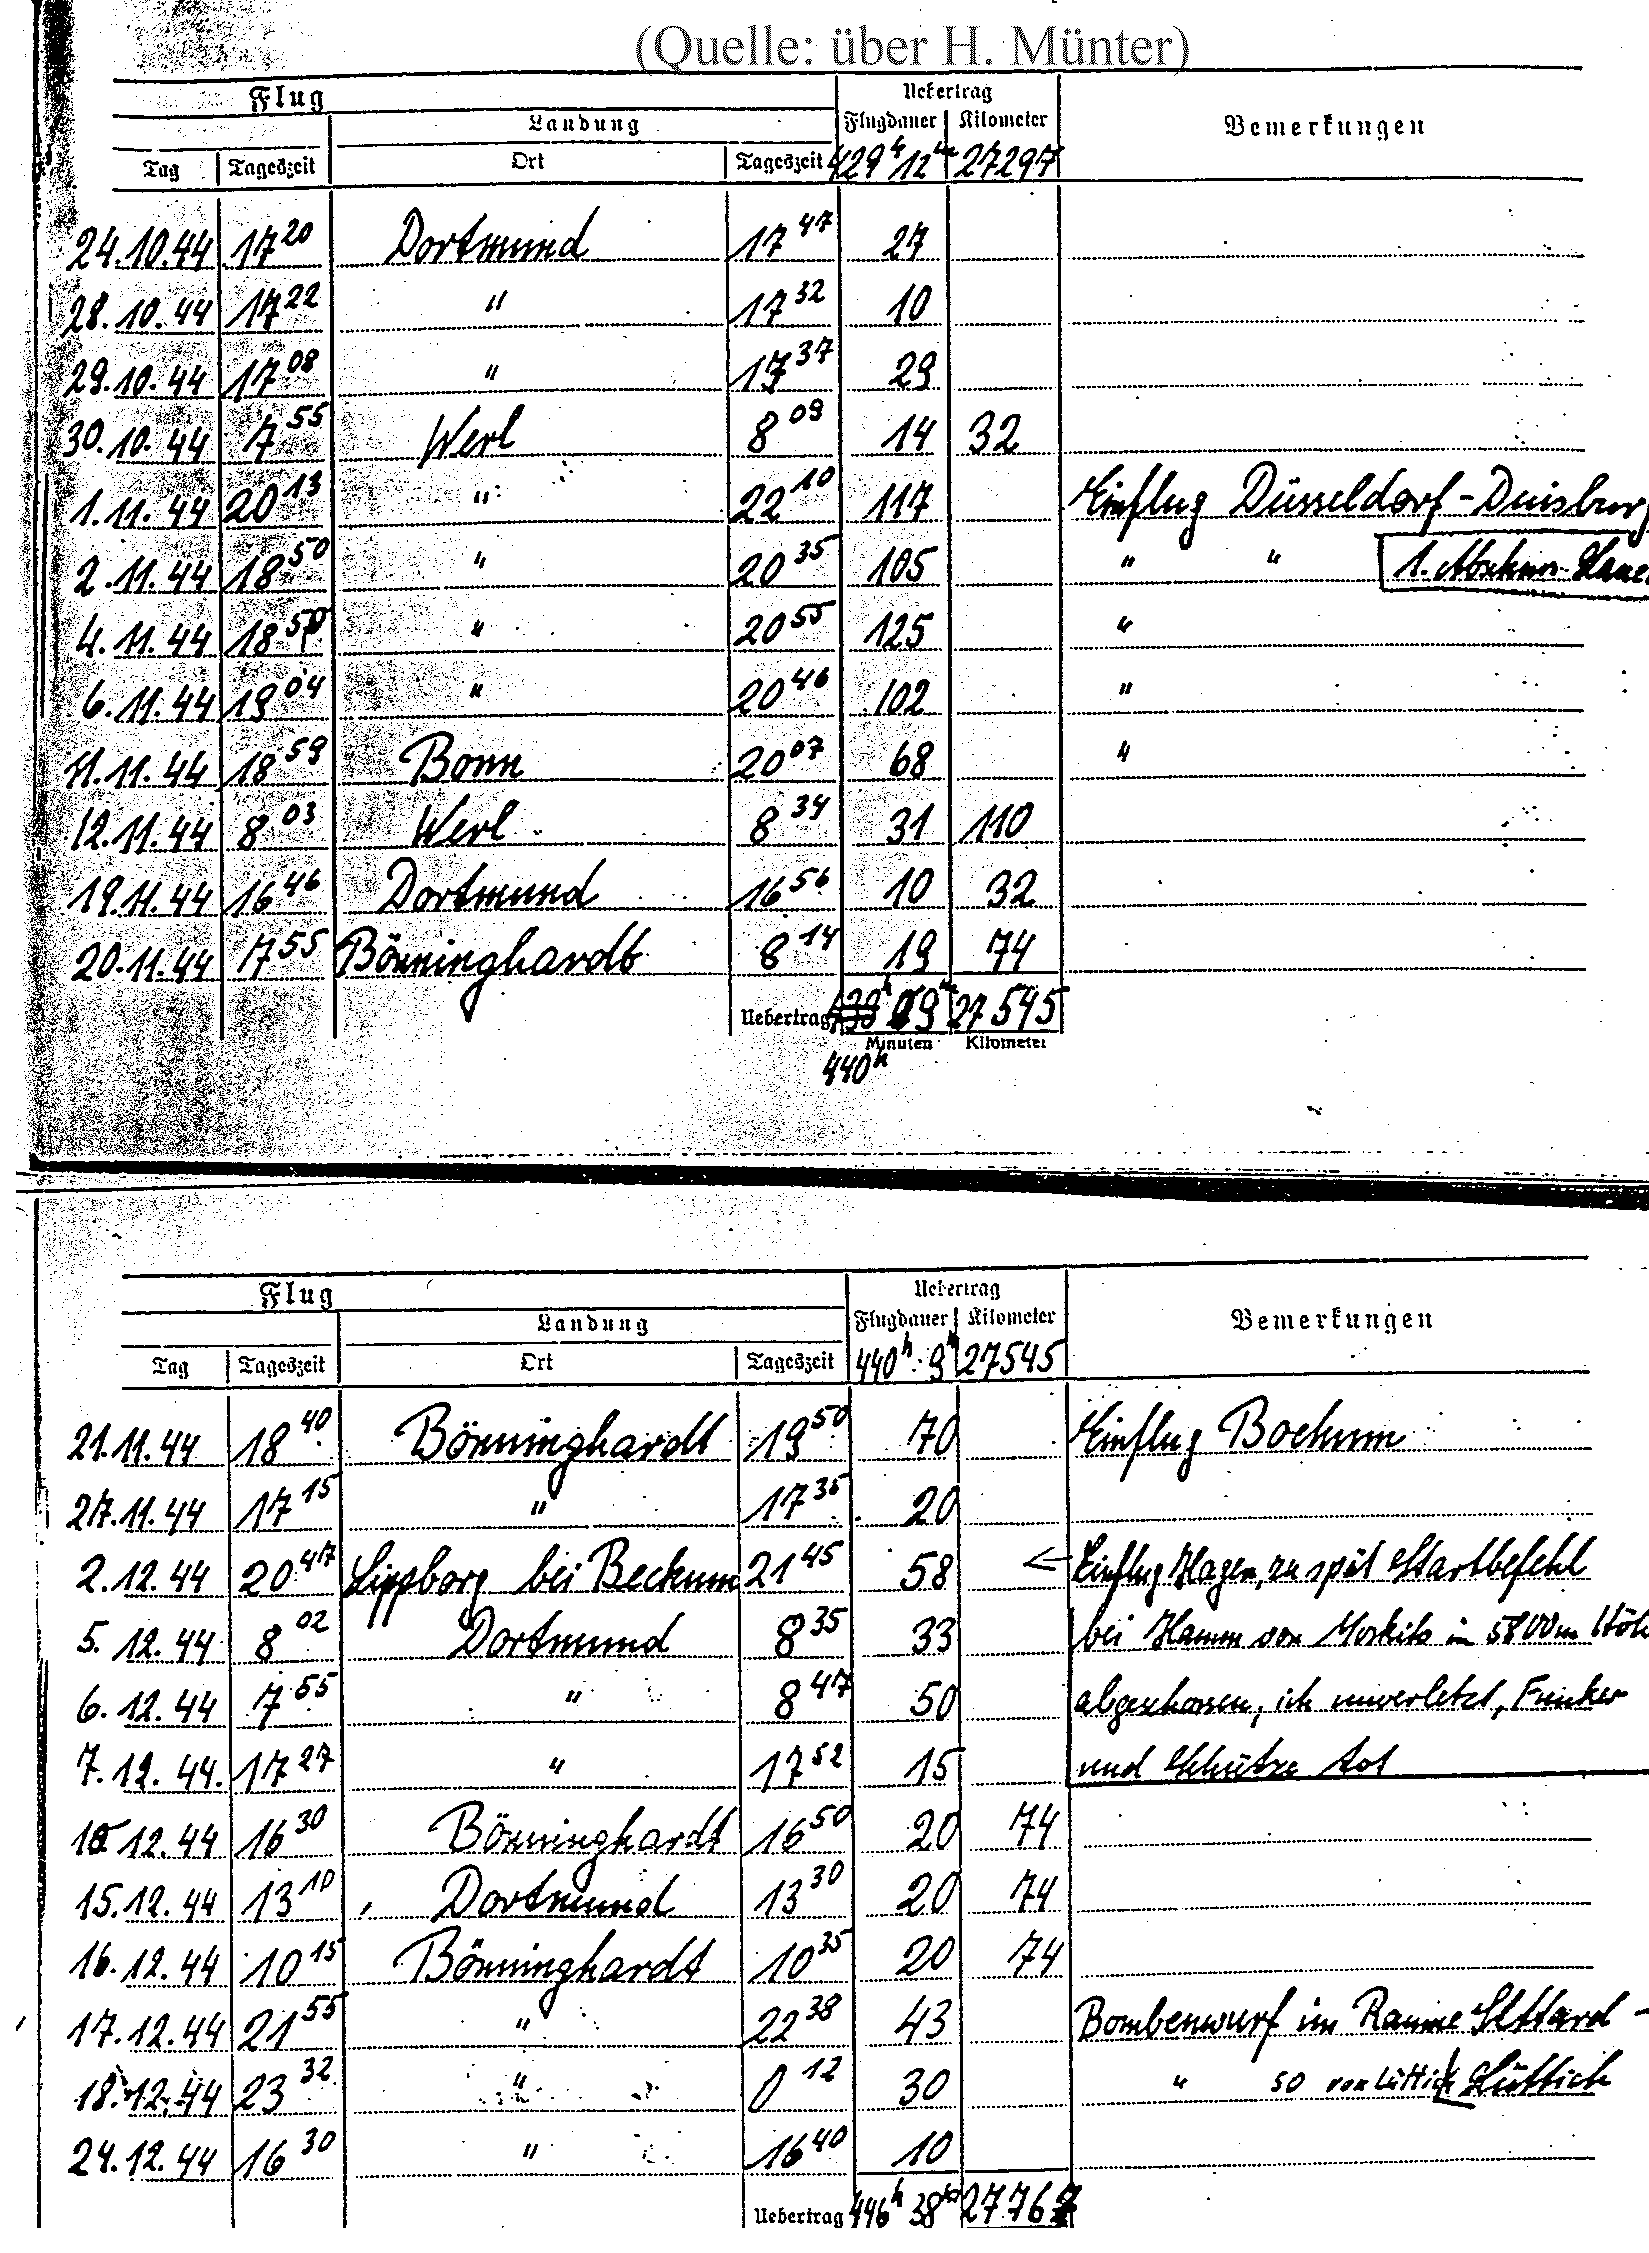 (Quelle: über H. Münter)
Flug Uebertrag
Landung Flugdauer Kilometer Bemerkungen
Tag Tageszeit Ort Tageszeit 429h 12m 27297
24.10.44 17 20 Dortmund 17 47 27
28.10.44 17 22 " 17 32 10
29.10.44 17 08 " 17 37 29
30.10.44 7 55 Werl 8 09 14 32
1.11.44 20 13 " 22 10 117 Einflug Düsseldorf - Duisburg
2.11.44 18 50 " 20 35 105 " " 1. Abschuss
4.11.44 18 50 " 20 55 125 "
6.11.44 19 04 " 20 46 102 "
11.11.44 18 59 Bonn 20 07 68 "
12.11.44 8 03 Werl 8 34 31 110
19.11.44 16 46 Dortmund 16 56 10 32
20.11.44 7 55 Bönninghardt 8 14 19 74
Uebertrag 09m 27545
Minuten Kilometer
440h
Flug Uebertrag
Landung Flugdauer Kilometer Bemerkungen
Tag Tageszeit Ort Tageszeit 440h 9m 27545
21.11.44 18 40 Bönninghardt 19 50 70 Einflug Bochum
27.11.44 17 15 " 17 35 20
2.12.44 20 47 Lippborg bei Beckum 21 45 58 Einflug Hagen, zu spät Startbefehl
5.12.44 8 02 Dortmund 8 35 33 bei Hamm von Moskito in 5800m Höhe
6.12.44 7 55 " 8 47 50 abgeschossen, ich unverletzt, Funker
7.12.44 17 27 " 17 52 15 und Schütze tot
10.12.44 16 30 Bönninghardt 16 50 20 74
15.12.44 13 10 Dortmund 13 30 20 74
16.12.44 10 15 Bönninghardt 10 35 20 74
17.12.44 21 55 " 22 38 43 Bombenwurf im Raume Sittard -
18.12.44 23 32 " 0 12 30 " SO von Lüttich Lüttich
24.12.44 16 30 " 16 40 10
Uebertrag 446h 38m 27767